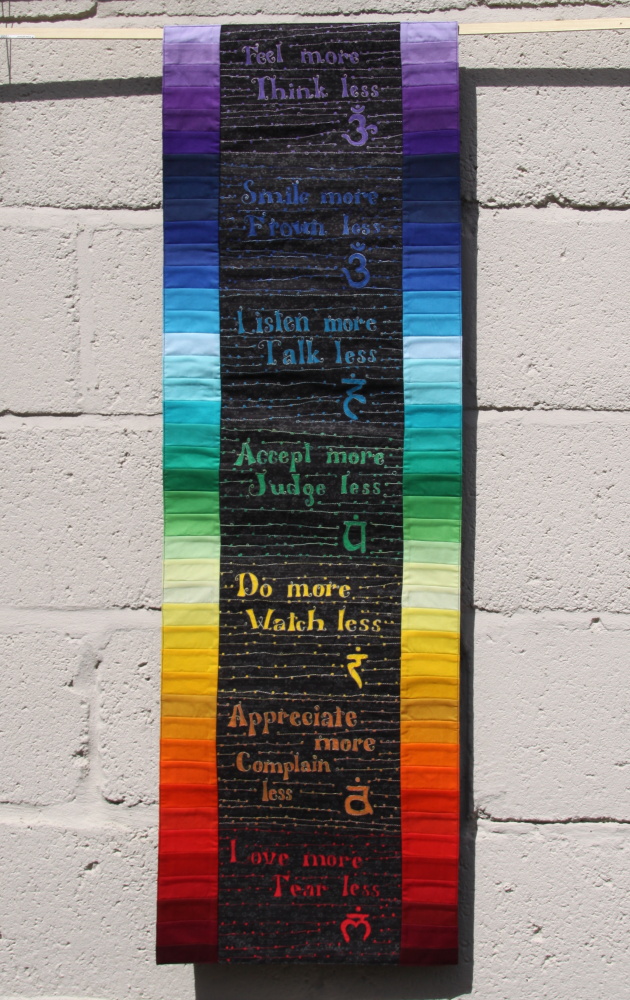 Feel more
Think less
ॐ
Smile more
Frown less
ॐ
Listen more
Talk less
हं
Accept more
Judge less
यं
Do more
Watch less
रं
Appreciate
more
Complain
less
वं
Love more
Fear less
लं